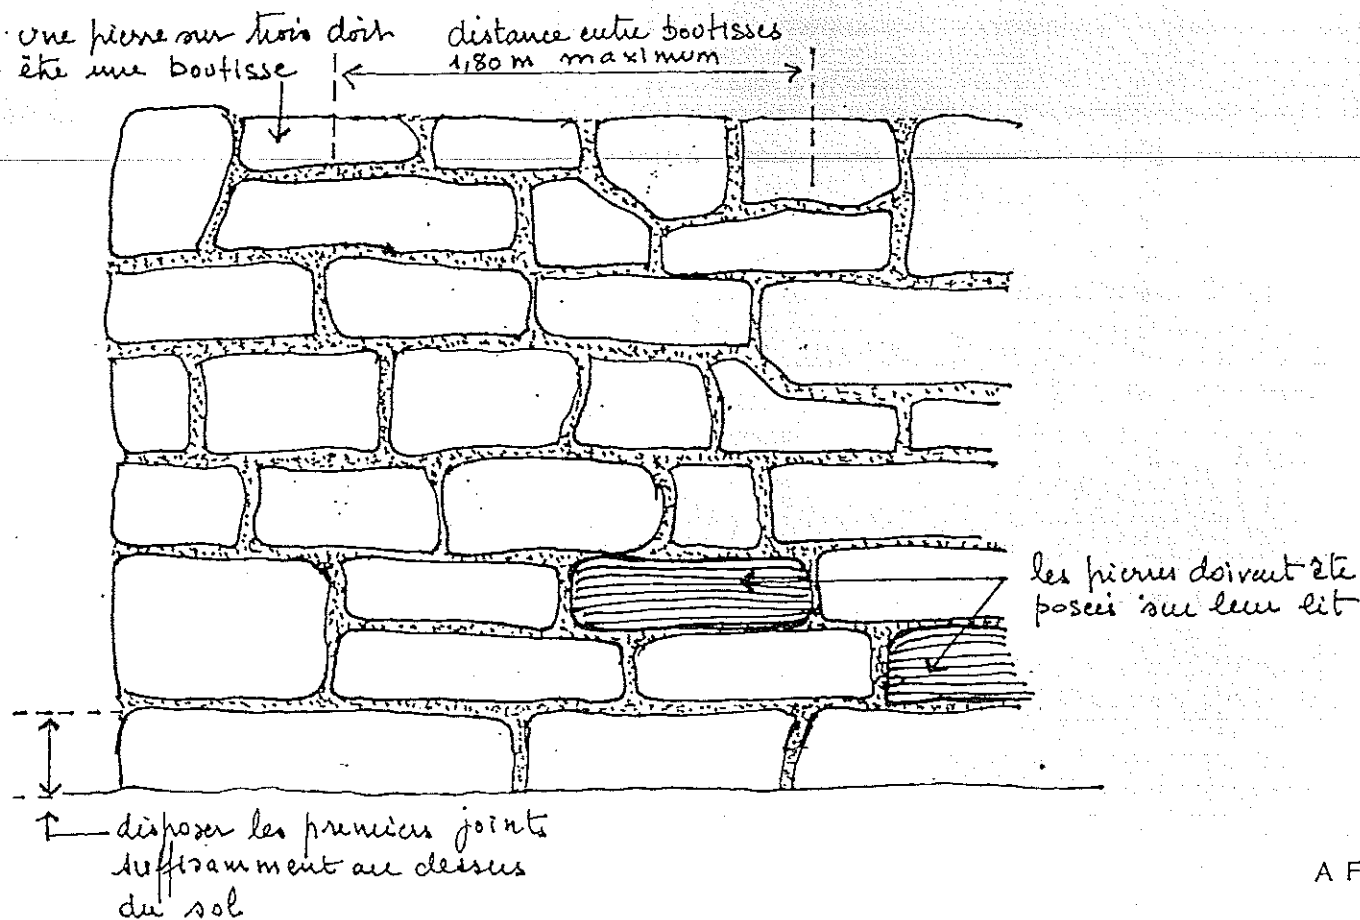 une pierre sur trois doit
être une boutisse
distance entre boutisses
1,80 m maximum
les pierres doivent être
posées sur leur lit
disposer les premiers joints
suffisamment au dessus
du sol
A F